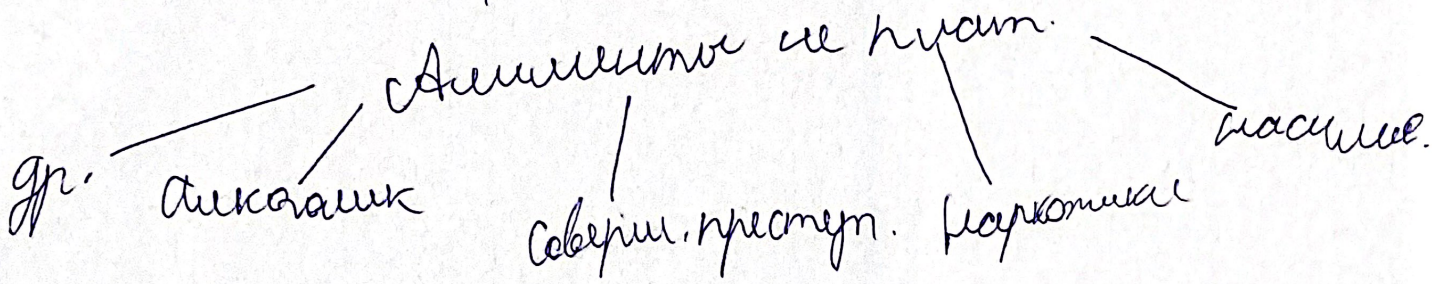 Алименты не плат.
др.
алкоголик
соверш. преступ.
наркотики
насилие.